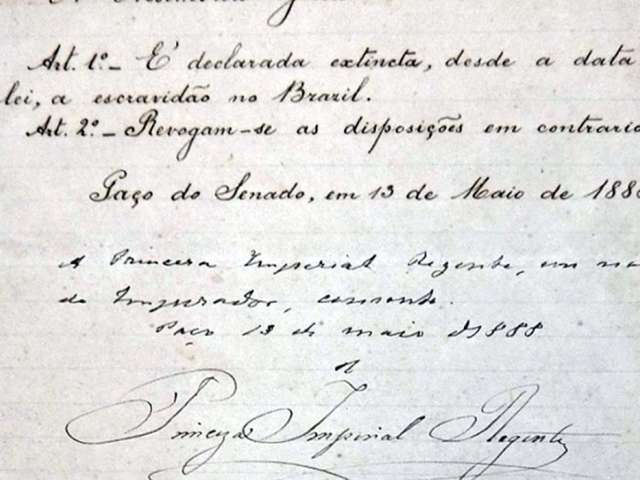 Art. 1º_ E' declarada extincta, desde a data
lei, a escravidão no Brazil.
Art. 2º_ Revogam-se as disposições em contrario
Paço do Senado, em 13 de Maio de 188
A Princeza Imperial Regente, em no
do Imperador, consente.
Paço 13 de maio de 1888
A
Princeza Imperial Regente